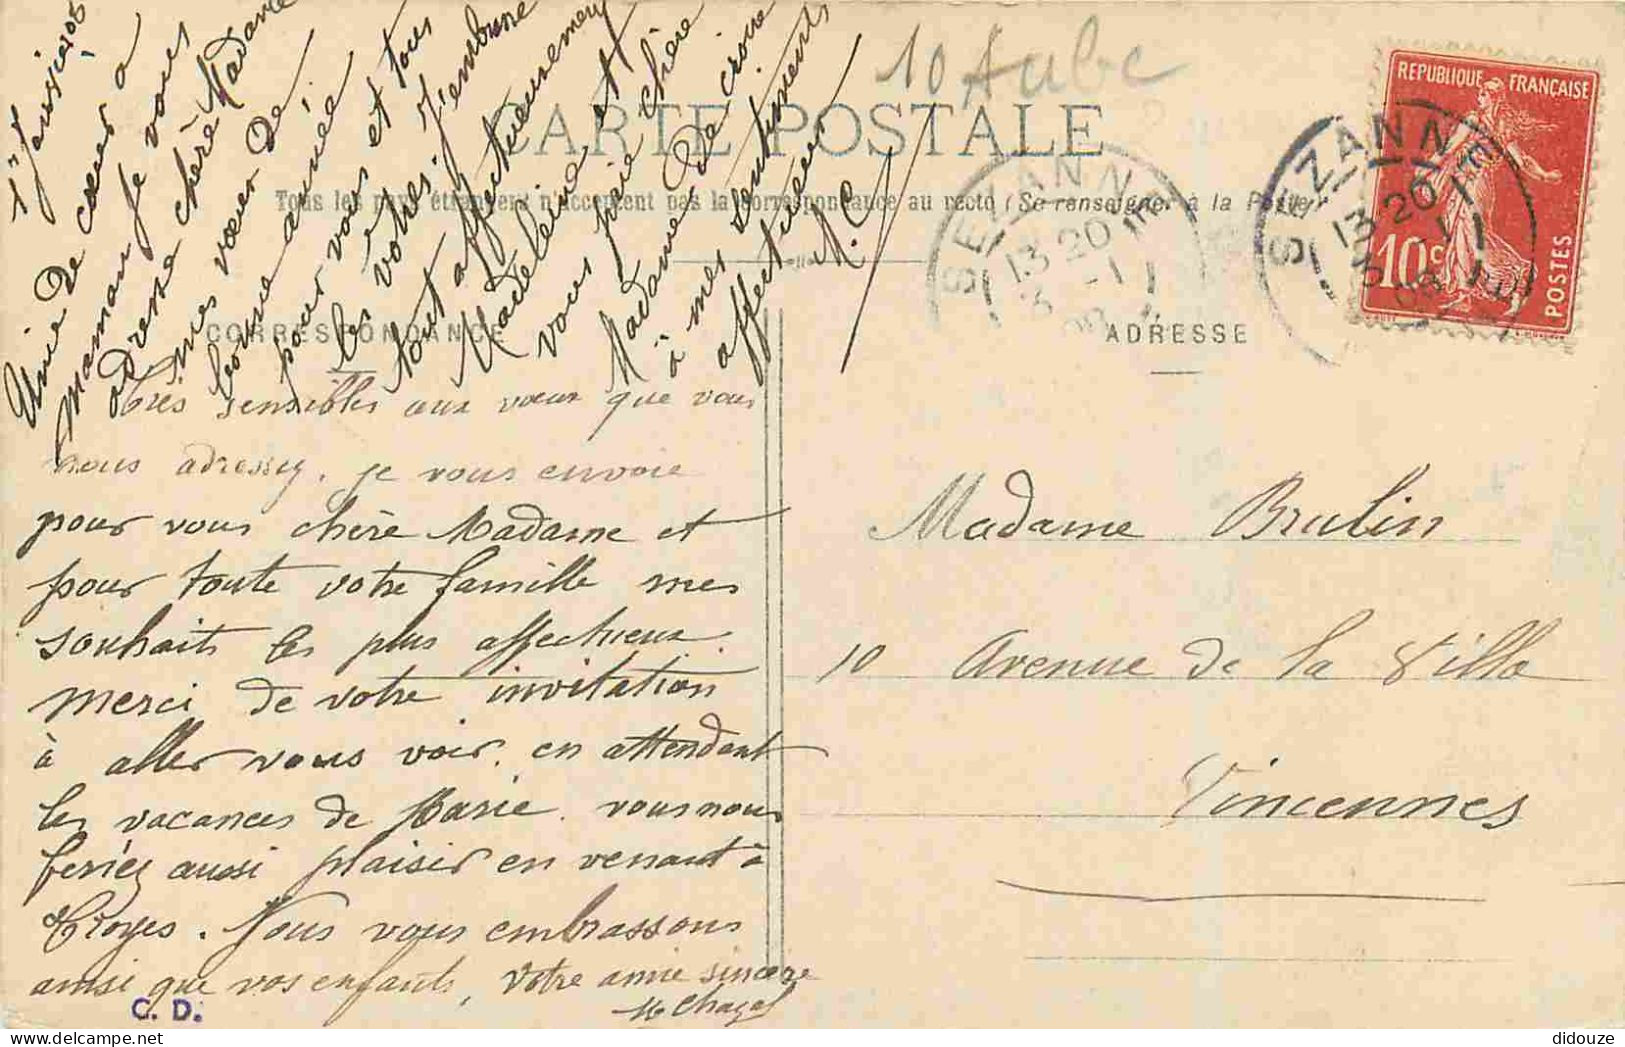 1er Janvier 08
Unie de cœur à
maman je vous
adresse chère Madame
mes vœux de
bonne année
pour vous et tous
les vôtres j'embrasse
tout affectueusement
Madeleine et
vous prie chère
Madame de croire
à mes sentiments
affectueux
M. C
10 Aube
CARTE POSTALE
Tous les pays étrangers n'acceptent pas la correspondance au recto (Se renseigner à la Poste)
CORRESPONDANCE
ADRESSE
REPUBLIQUE FRANÇAISE
10c
POSTES
SEZANNE
13 20
3 -1
08
SEZANNE
13 20
3 -1
08
Très sensibles aux vœux que vous
nous adressez, je vous envoie
pour vous chère Madame et
pour toute votre famille mes
souhaits les plus affectueux.
Merci de votre invitation
à aller vous voir, en attendant
les vacances de Marie vous nous
feriez aussi plaisir en venant à
Troyes. Nous vous embrassons
ainsi que vos enfants, votre amie sincère
M Chazal
C. D.
Madame Brulin
10 Avenue de la Ville
Vincennes
didouze